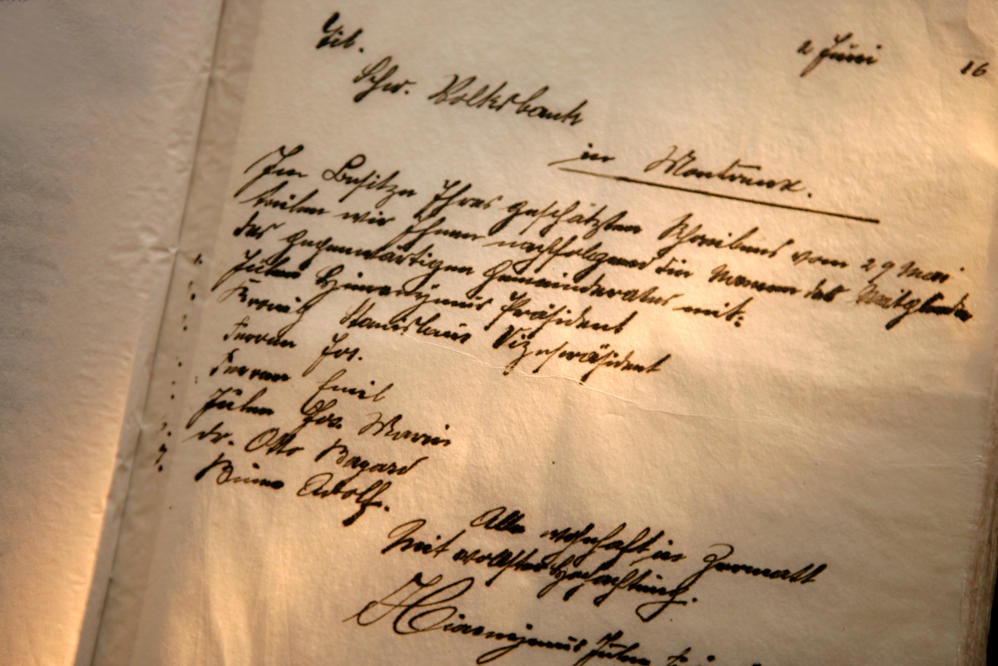 Tit.
2 Juni 16
Schw. Volksbank
in Montreux.
Im Besitze Ihres geschätzten Schreibens vom 29 Mai
teilen wir Ihnen nachfolgend die Namen der Mitglieder
des gegenwärtigen Gemeinderates mit:
Julen Hieronymus Präsident
Stanislaus Vizepräsident
Perren Jos.
Perren Emil
Julen Jos. Marie
dr. Otto Bayard
Adolf.
Alle wohnhaft in Zermatt
Mit vollster Hochachtung.
Hieronymus Julen